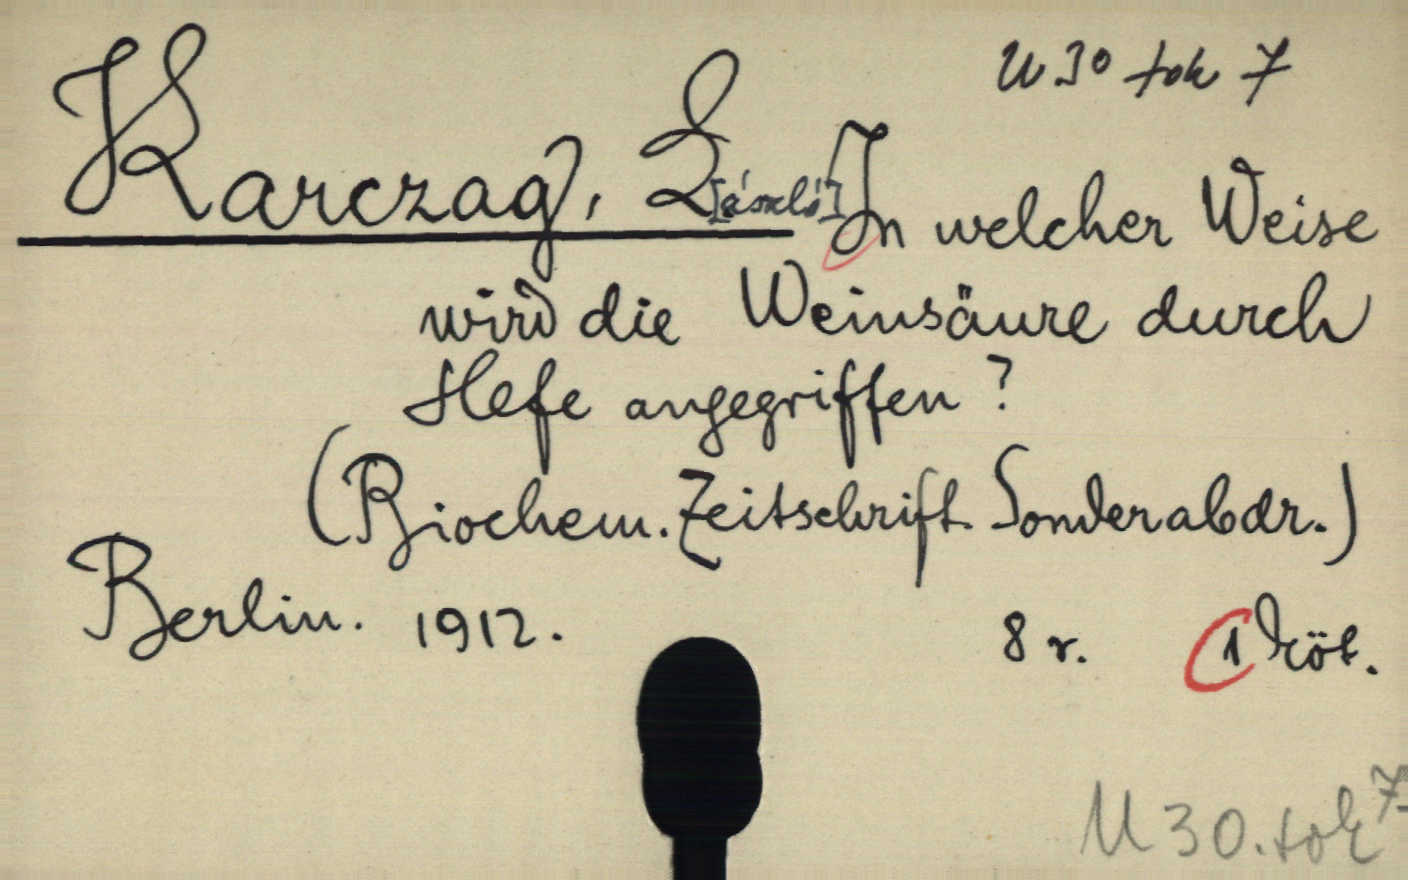 U 30 tok 7
Karczag, L[ászló] In welcher Weise
wird die Weinsäure durch
Hefe angegriffen?
(Biochem. Zeitschrift Sonderabdr.)
Berlin. 1912. 8 r. 1 köt.
U 30. tok 7